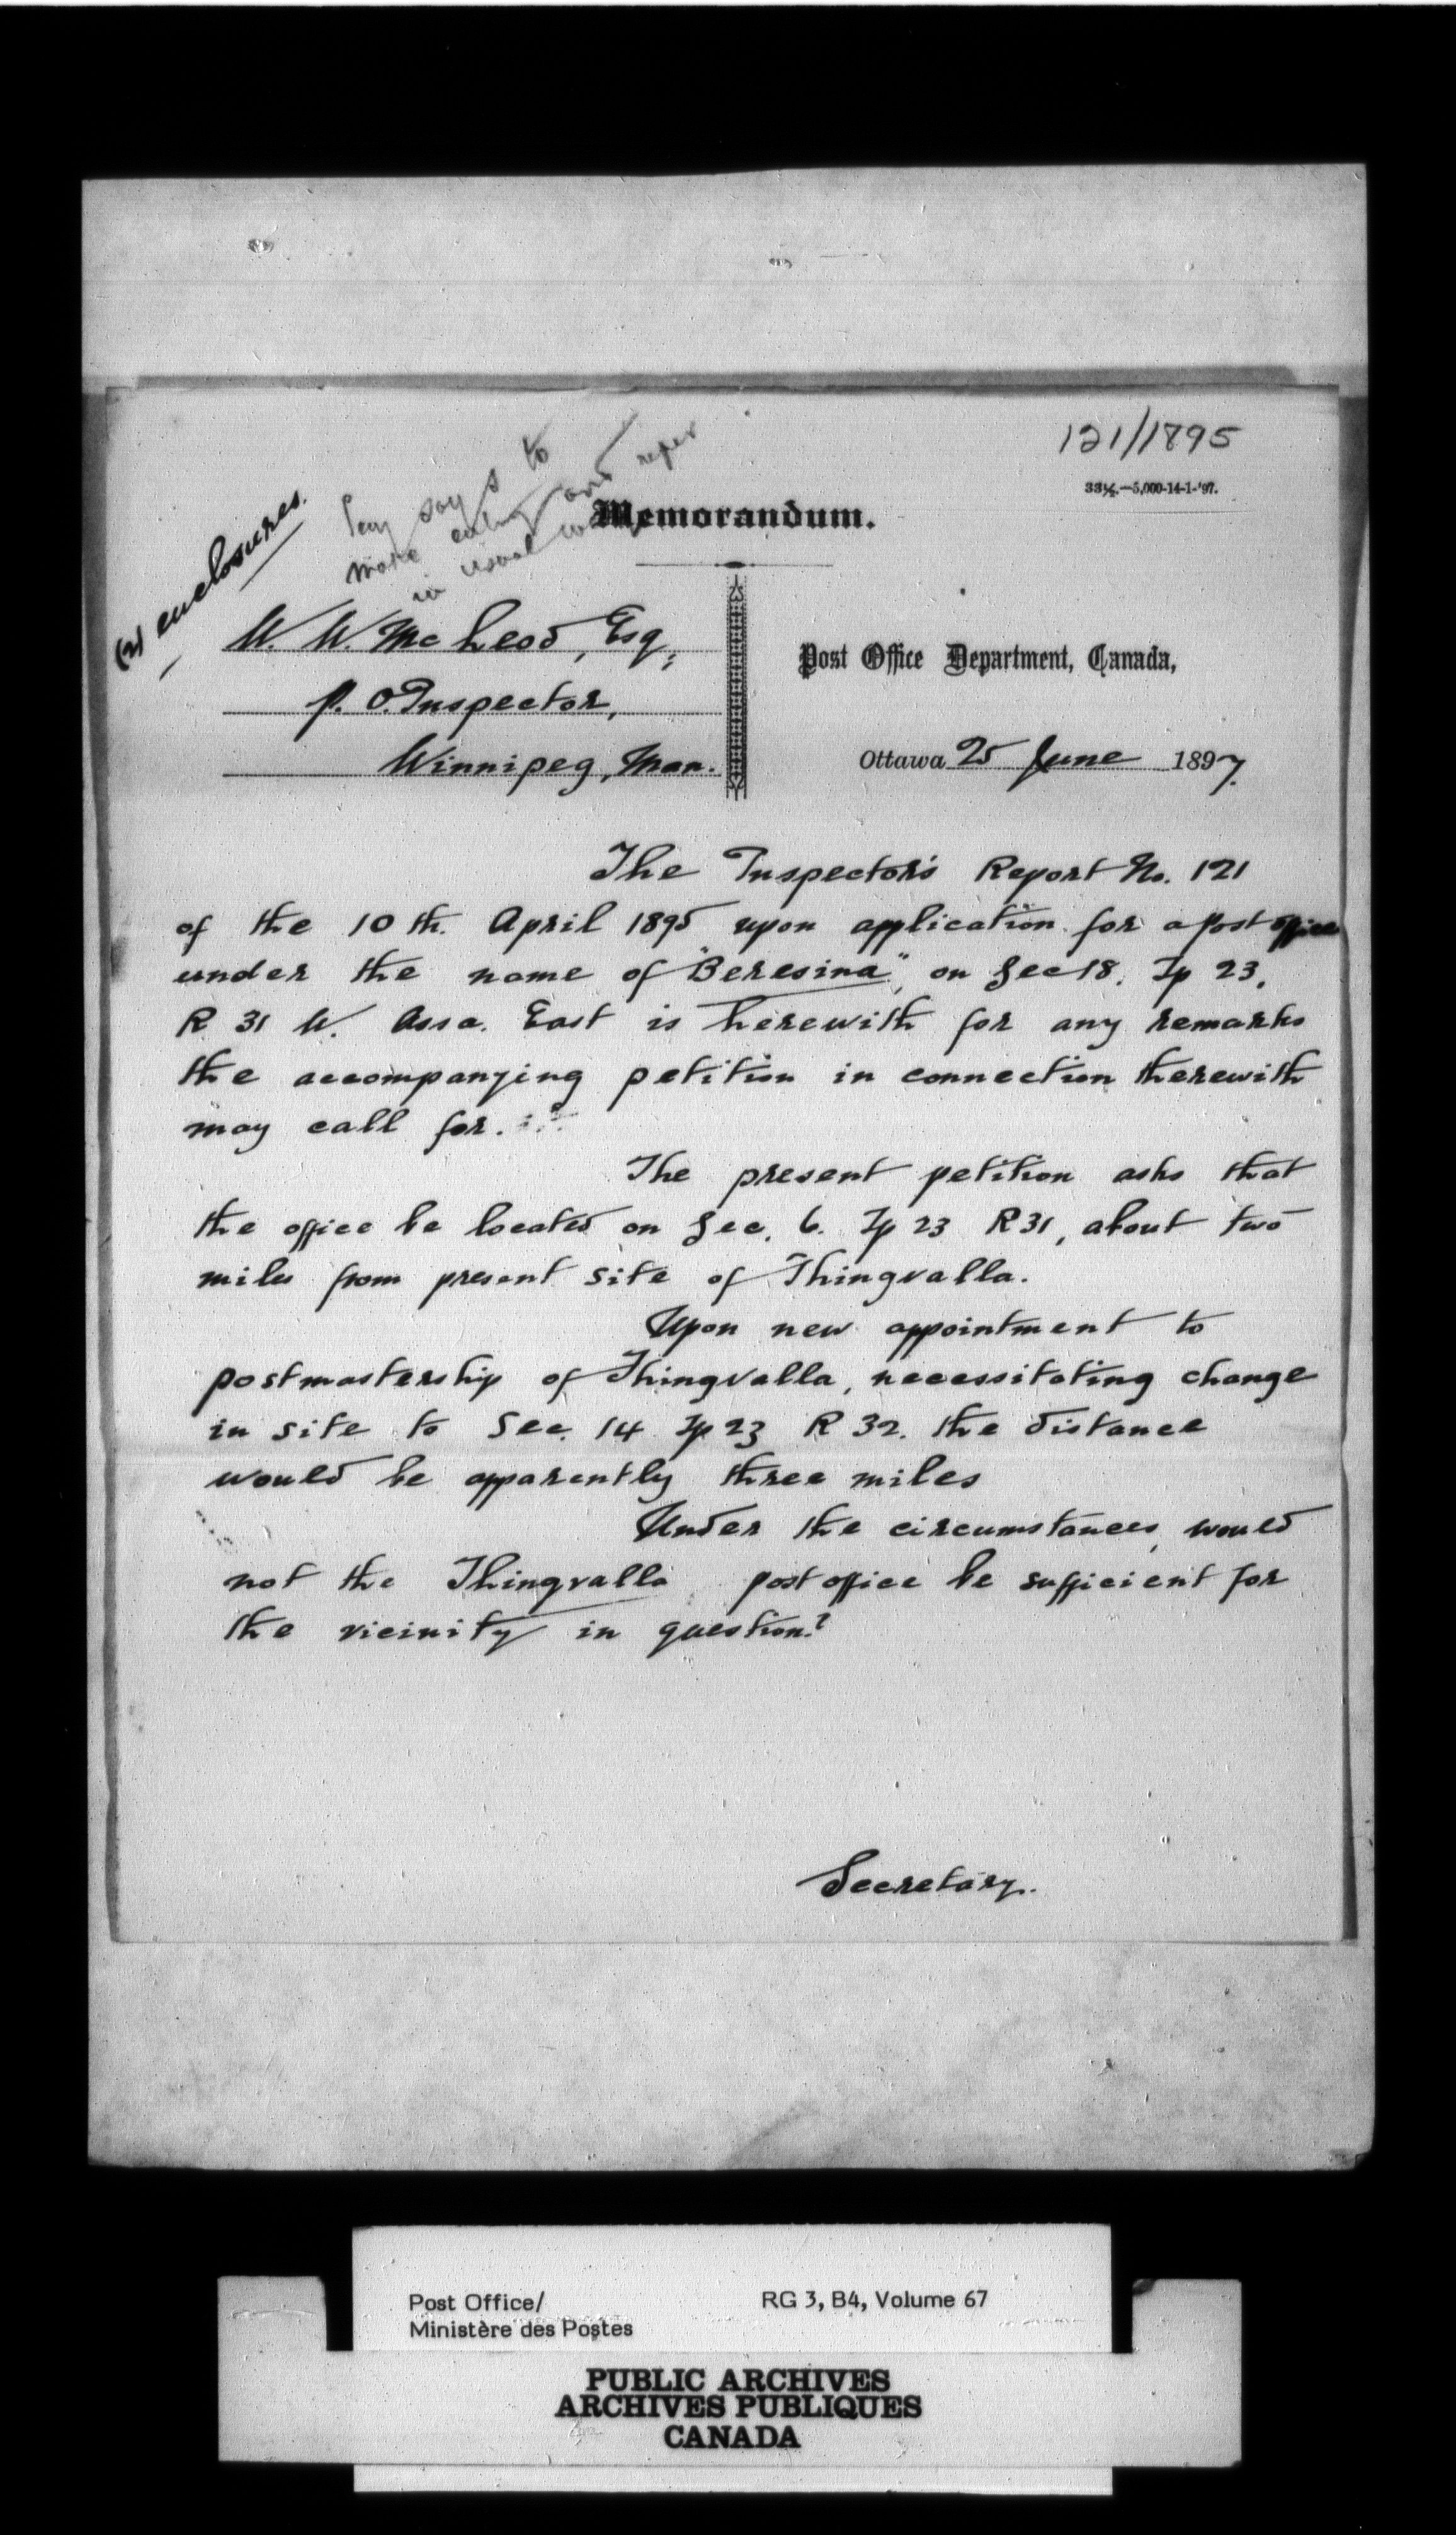 121/1895
33½.—5,000-14-1-'97.
(2) enclosures.
say to
make enquiry and
in usual way
Memorandum.
W. W. McLeod, Esq,
P. O. Inspector,
Winnipeg, Man.
Post Office Department, Canada,
Ottawa 25 June 1897.
The Inspector's Report No. 121
of the 10th. April 1895 upon application for a post office
under the name of "Beresina", on Sec 18. Tp 23.
R 31 W. Assa. East is herewith for any remarks
the accompanying petition in connection therewith
may call for.
The present petition asks that
the office be located on Sec. 6. Tp 23 R 31, about two
miles from present site of Thingvalla.
Upon new appointment to
postmastership of Thingvalla, necessitating change
in site to Sec. 14 Tp 23 R 32. the distance
would be apparently three miles
Under the circumstances, would
not the Thingvalla post office be sufficient for
the vicinity in question?
Secretary.
Post Office/
Ministère des Postes
RG 3, B4, Volume 67
PUBLIC ARCHIVES
ARCHIVES PUBLIQUES
CANADA